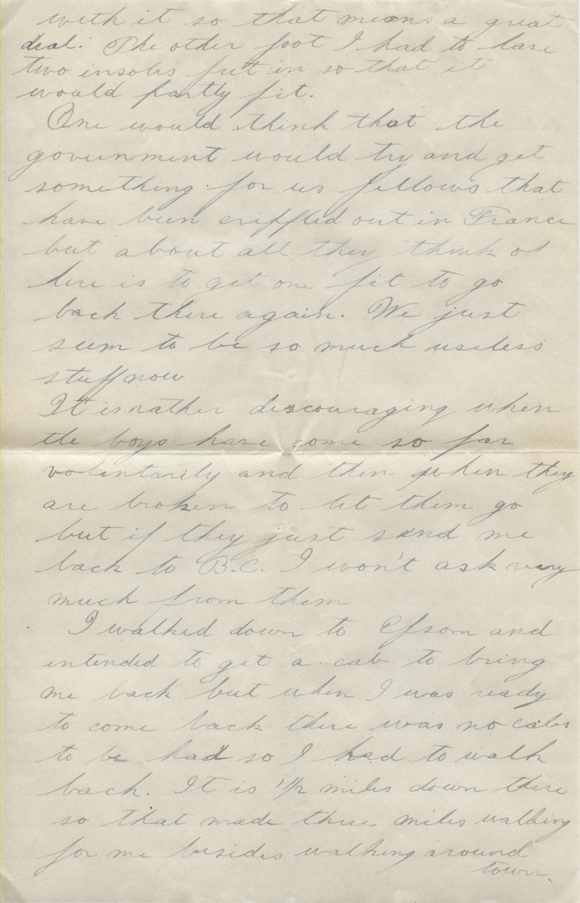 with it so that means a great
deal. The other foot I had to have
two insoles put in so that it
would partly fit.
One would think that the
government would try and get
something for us fellows that
have been crippled out in France
but about all they think of
here is to get one fit to go
back there again. We just
seem to be so much useless
stuff now
It is rather discouraging when
the boys have come so far
voluntarily and then when they
are broken to let them go
but if they just send me
back to B.C. I won't ask very
much from them
I walked down to Epsom and
intended to get a cab to bring
me back but when I was ready
to come back there was no cabs
to be had so I had to walk
back. It is 1½ miles down there
so that made three miles walking
for me besides walking around
town.